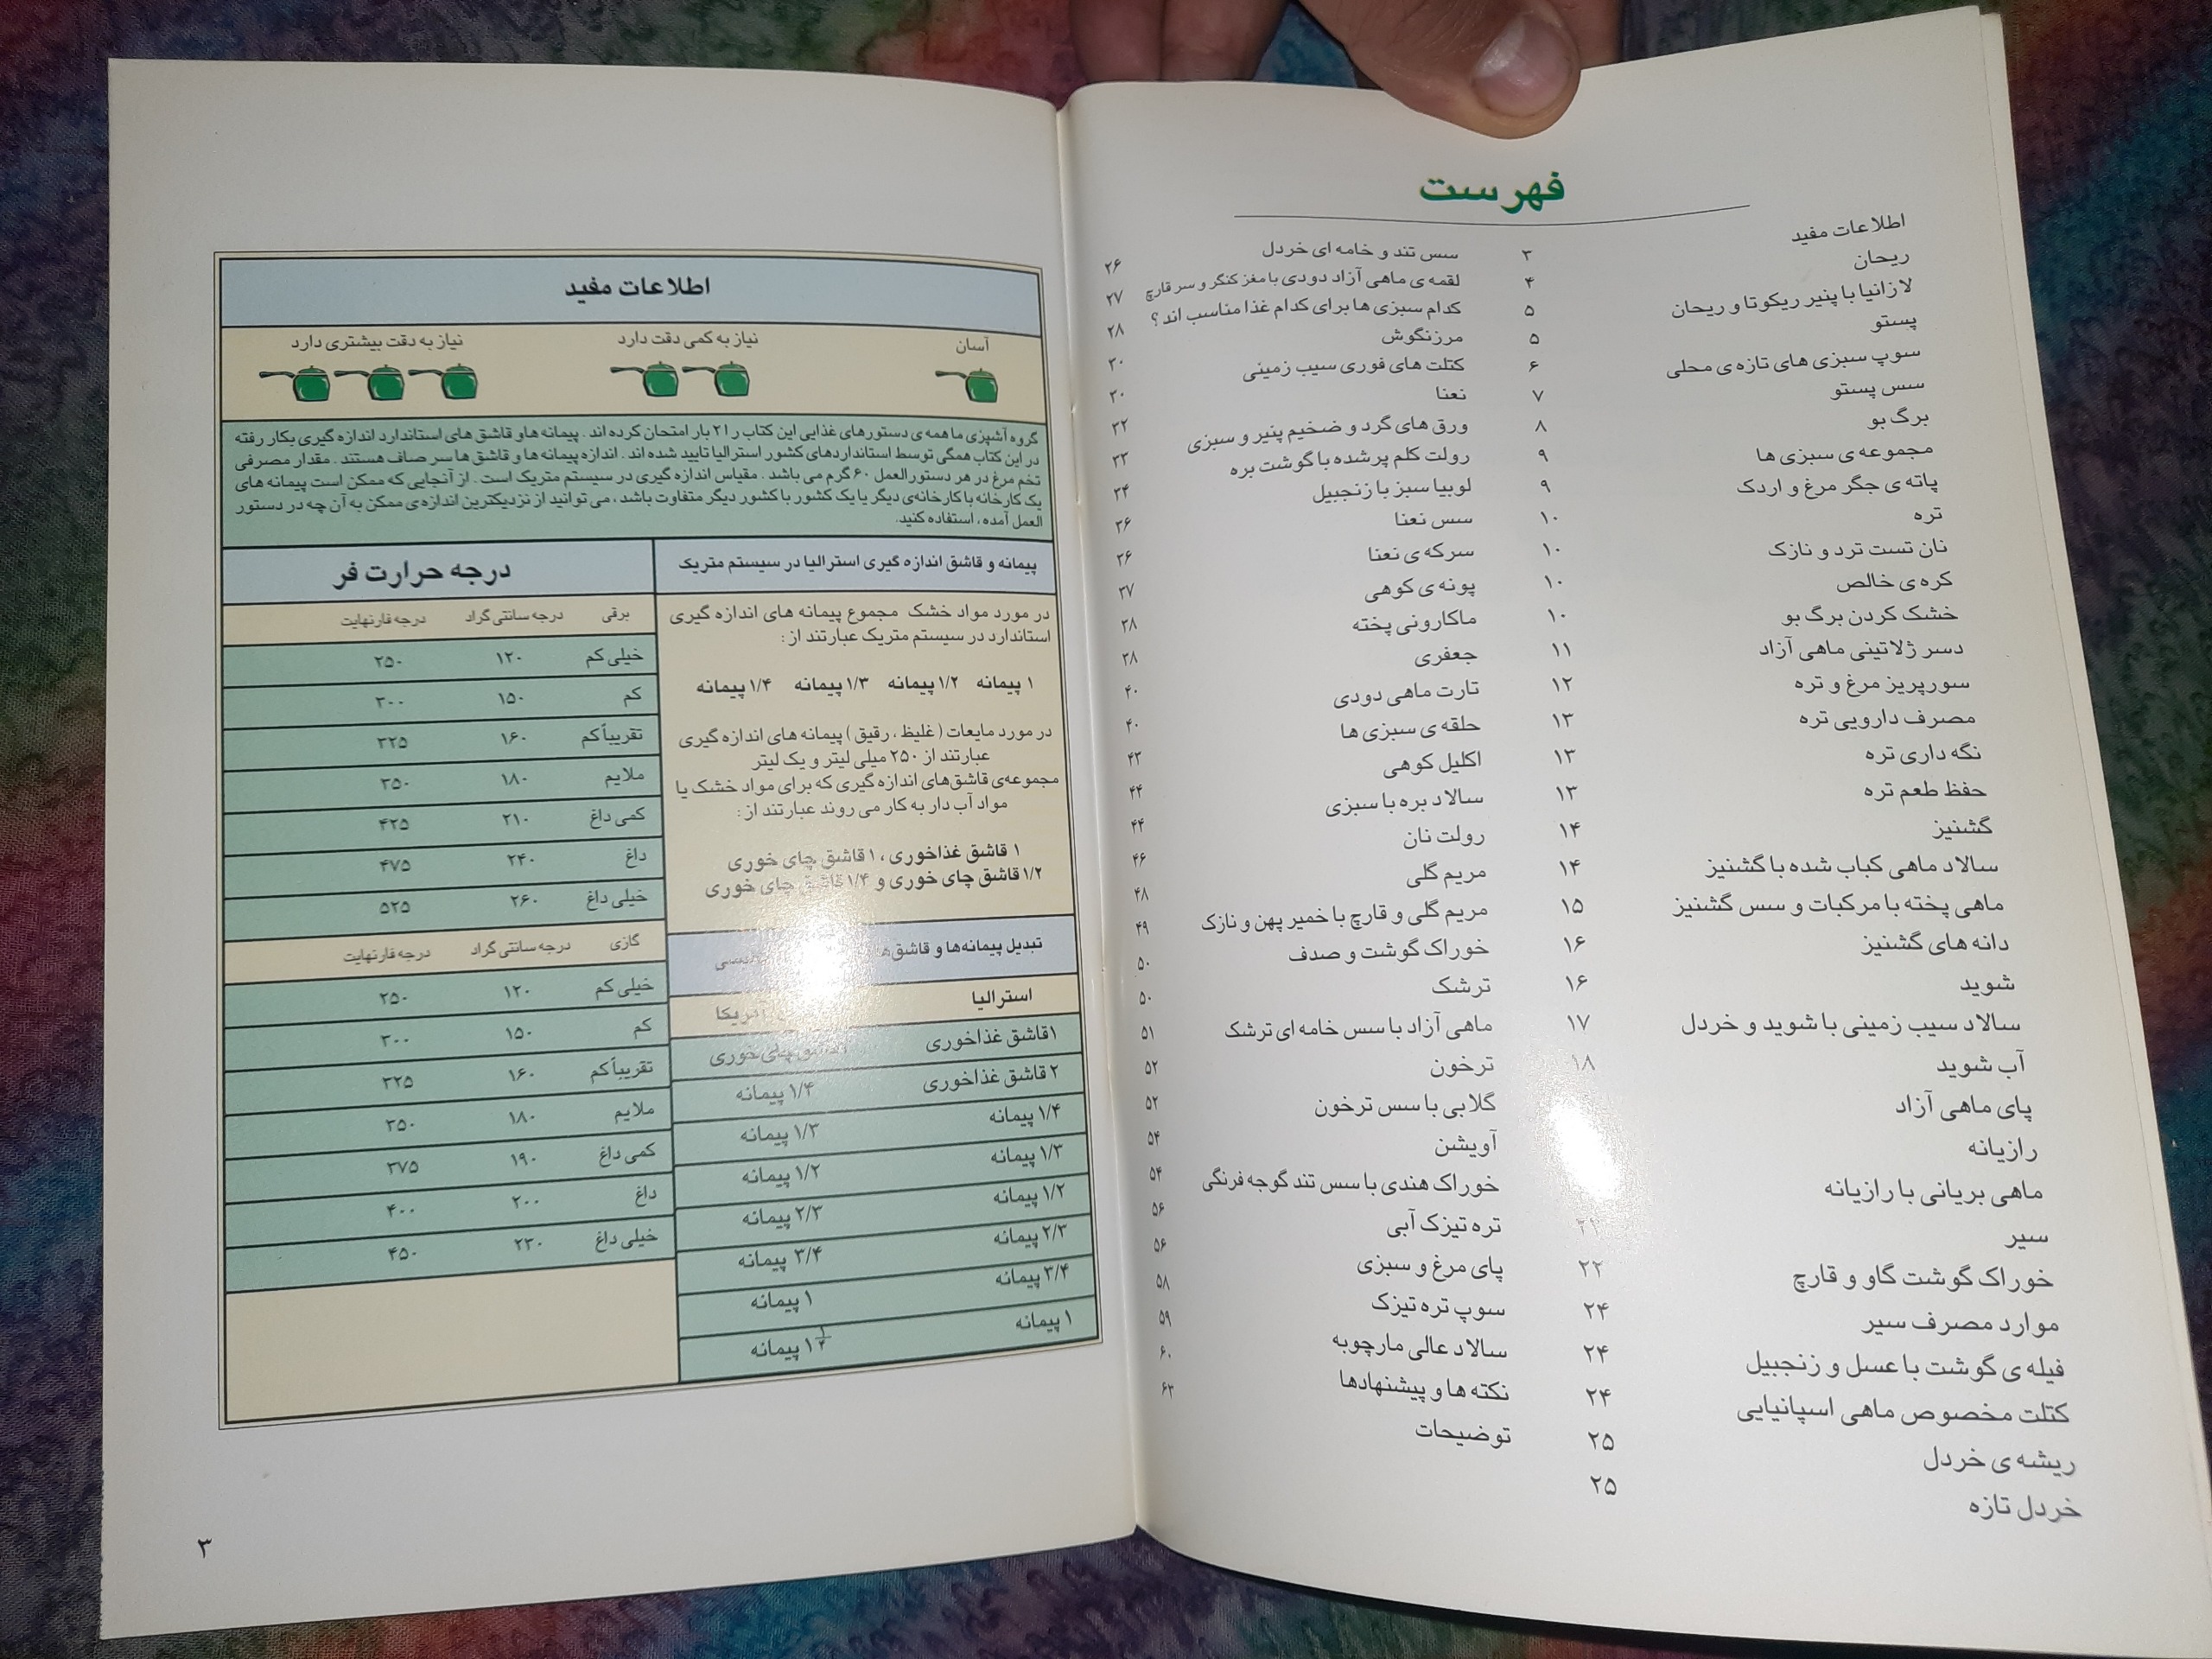 فهرست
اطلاعات مفید ۳
ریحان ۴
لازانیا با پنیر ریکوتا و ریحان ۵
پستو ۵
سوپ سبزی های تازه ی محلی ۶
سس پستو ۷
برگ بو ۸
مجموعه ی سبزی ها ۹
پاته ی جگر مرغ و اردک ۹
تره ۱۰
نان تست ترد و نازک ۱۰
کره ی خالص ۱۰
خشک کردن برگ بو ۱۰
دسر ژلاتینی ماهی آزاد ۱۱
سورپریز مرغ و تره ۱۲
مصرف دارویی تره ۱۳
نگه داری تره ۱۳
حفظ طعم تره ۱۳
گشنیز ۱۴
سالاد ماهی کباب شده با گشنیز ۱۴
ماهی پخته با مرکبات و سس گشنیز ۱۵
دانه های گشنیز ۱۶
شوید ۱۶
سالاد سیب زمینی با شوید و خردل ۱۷
آب شوید ۱۸
پای ماهی آزاد
رازیانه
ماهی بریانی با رازیانه
سیر
خوراک گوشت گاو و قارچ ۲۲
موارد مصرف سیر ۲۴
فیله ی گوشت با عسل و زنجبیل ۲۴
کتلت مخصوص ماهی اسپانیایی ۲۴
ریشه ی خردل ۲۵
خردل تازه ۲۵
سس تند و خامه ای خردل ۲۶
لقمه ی ماهی آزاد دودی با مغز کنگر و سر قارچ ۲۷
کدام سبزی ها برای کدام غذا مناسب اند؟ ۲۸
مرزنگوش ۳۰
کتلت های فوری سیب زمینی ۳۰
نعنا ۳۲
ورق های گرد و ضخیم پنیر و سبزی ۳۳
رولت کلم پرشده با گوشت بره ۳۴
لوبیا سبز با زنجبیل ۳۶
سس نعنا ۳۶
سرکه ی نعنا ۳۷
پونه ی کوهی ۳۸
ماکارونی پخته ۳۸
جعفری ۴۰
تارت ماهی دودی ۴۰
حلقه ی سبزی ها ۴۳
اکلیل کوهی ۴۴
سالاد بره با سبزی ۴۴
رولت نان ۴۶
مریم گلی ۴۸
مریم گلی و قارچ با خمیر پهن و نازک ۴۹
خوراک گوشت و صدف ۵۰
ترشک ۵۰
ماهی آزاد با سس خامه ای ترشک ۵۱
ترخون ۵۲
گلابی با سس ترخون ۵۲
آویشن ۵۴
خوراک هندی با سس تند گوجه فرنگی ۵۴
تره تیزک آبی ۵۶
پای مرغ و سبزی ۵۶
سوپ تره تیزک ۵۸
سالاد عالی مارچوبه ۵۹
نکته ها و پیشنهادها ۶۰
توضیحات ۶۳
اطلاعات مفید
آسان نیاز به کمی دقت دارد نیاز به دقت بیشتری دارد
گروه آشپزی ما همه ی دستورهای غذایی این کتاب را ۲۱ بار امتحان کرده اند . پیمانه ها و قاشق های استاندارد اندازه گیری بکار رفته
در این کتاب همگی توسط استانداردهای کشور استرالیا تایید شده اند . اندازه پیمانه ها و قاشق ها سر صاف هستند . مقدار مصرفی
تخم مرغ در هر دستورالعمل ۶۰ گرم می باشد . مقیاس اندازه گیری در سیستم متریک است . از آنجایی که ممکن است پیمانه های
یک کارخانه با کارخانه‌ی دیگر یا یک کشور با کشور دیگر متفاوت باشد ، می توانید از نزدیکترین اندازه ی ممکن به آن چه در دستور
العمل آمده ، استفاده کنید.
پیمانه و قاشق اندازه گیری استرالیا در سیستم متریک
در مورد مواد خشک مجموع پیمانه های اندازه گیری
استاندارد در سیستم متریک عبارتند از:
۱ پیمانه ۱/۲ پیمانه ۱/۳ پیمانه ۱/۴ پیمانه
در مورد مایعات ( غلیظ ، رقیق ) پیمانه های اندازه گیری
عبارتند از ۲۵۰ میلی لیتر و یک لیتر
مجموعه‌ی قاشق‌های اندازه گیری که برای مواد خشک یا
مواد آب دار به کار می روند عبارتند از:
۱ قاشق غذاخوری ، ۱ قاشق چای خوری
۱/۲ قاشق چای خوری و ۱/۴ قاشق چای خوری
تبدیل پیمانه‌ها و قاشق‌ها
استرالیا آمریکا
۱ قاشق غذاخوری قاشق چای خوری
۲ قاشق غذاخوری ۱/۴ پیمانه
۱/۴ پیمانه ۱/۳ پیمانه
۱/۳ پیمانه ۱/۲ پیمانه
۱/۲ پیمانه ۲/۳ پیمانه
۲/۳ پیمانه ۳/۴ پیمانه
۳/۴ پیمانه ۱ پیمانه
۱ پیمانه ۱ ۱/۴ پیمانه
درجه حرارت فر
برقی درجه سانتی گراد درجه فارنهایت
خیلی کم ۱۲۰ ۲۵۰
کم ۱۵۰ ۳۰۰
تقریباً کم ۱۶۰ ۳۲۵
ملایم ۱۸۰ ۳۵۰
کمی داغ ۲۱۰ ۴۲۵
داغ ۲۴۰ ۴۷۵
خیلی داغ ۲۶۰ ۵۲۵
گازی درجه سانتی گراد درجه فارنهایت
خیلی کم ۱۲۰ ۲۵۰
کم ۱۵۰ ۳۰۰
تقریباً کم ۱۶۰ ۳۲۵
ملایم ۱۸۰ ۳۵۰
کمی داغ ۱۹۰ ۳۷۵
داغ ۲۰۰ ۴۰۰
خیلی داغ ۲۳۰ ۴۵۰
۳